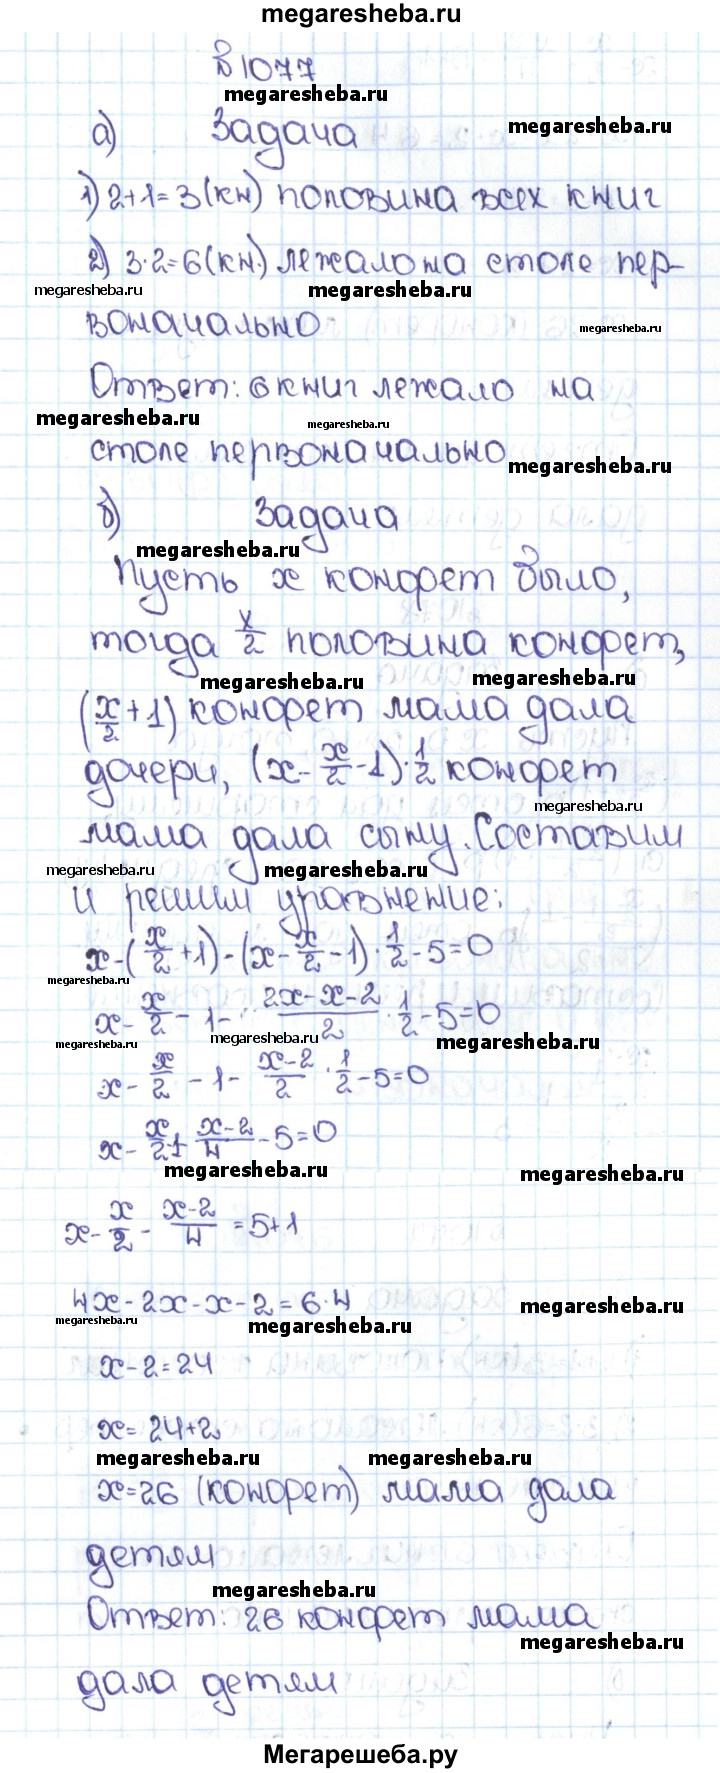 megaresheba.ru
№1077
megaresheba.ru
а) Задача
megaresheba.ru
1) 2+1=3(кн) половина всех книг
2) 3·2=6(кн.) лежало на столе пер-
megaresheba.ru
megaresheba.ru
воначально
megaresheba.ru
Ответ: 6 книг лежало на
megaresheba.ru
megaresheba.ru
столе первоначально
megaresheba.ru
б) Задача
megaresheba.ru
Пусть x конфет было,
тогда x/2 половина конфет,
megaresheba.ru
megaresheba.ru
(x/2+1) конфет мама дала
дочери, (x-x/2-1)·1/2 конфет
megaresheba.ru
мама дала сыну. Составим
megaresheba.ru
megaresheba.ru
и решим уравнение:
x-(x/2+1)-(x-x/2-1)·1/2-5=0
megaresheba.ru
x-x/2-1-(2x-x-2)/2·1/2-5=0
megaresheba.ru
megaresheba.ru
megaresheba.ru
x-x/2-1-(x-2)/2·1/2-5=0
x-x/2 1 (x-2)/4-5=0
megaresheba.ru
megaresheba.ru
x-x/2-(x-2)/4=5+1
4x-2x-x-2=6·4
megaresheba.ru
megaresheba.ru
megaresheba.ru
x-2=24
x=24+2
megaresheba.ru
megaresheba.ru
x=26 (конфет) мама дала
детям
megaresheba.ru
Ответ: 26 конфет мама
megaresheba.ru
дала детям
Мегарешеба.ру